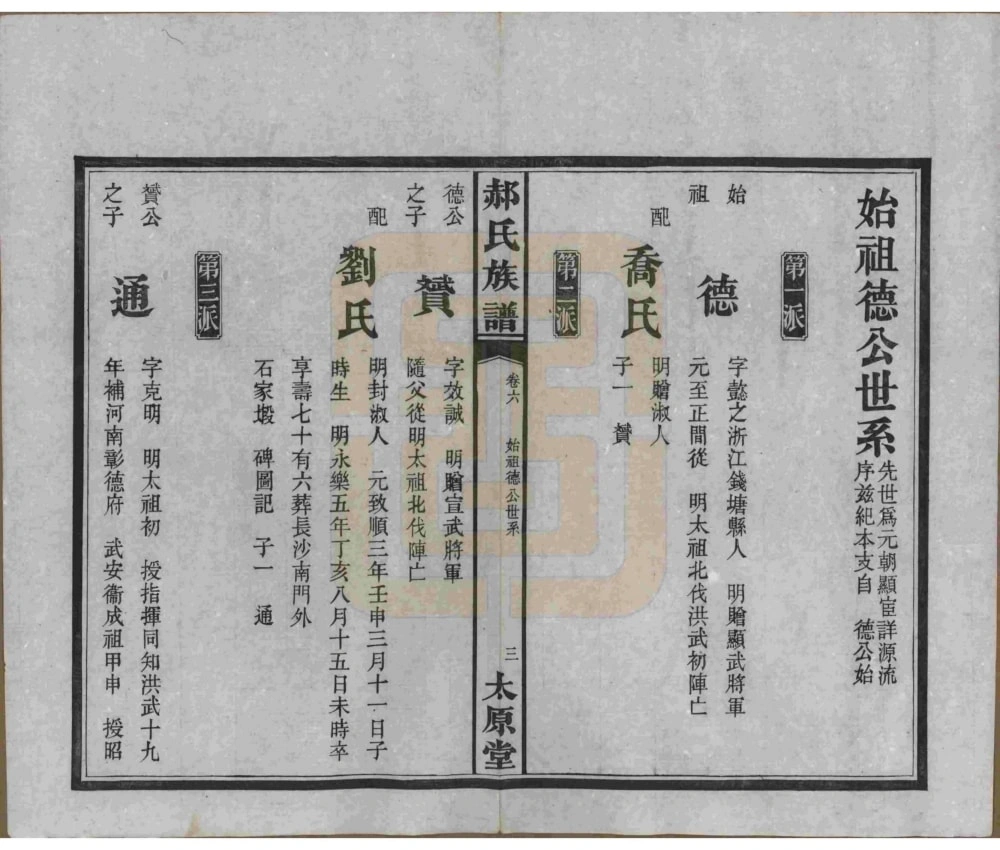 始祖德公世系
先世爲元朝顯宦詳源流
序兹紀本支自 德公始
第一派
始
祖
德
字懿之浙江錢塘縣人 明贈顯武將軍
元至正間從 明太祖北伐洪武初陣亡
配
喬氏
明贈淑人
子一 贇
第二派
郝氏族譜
卷六 始祖德公世系 三
太原堂
德公
之子
贇
字效誠 明贈宣武將軍
隨父從明太祖北伐陣亡
配
劉氏
明封淑人 元致順三年壬申三月十一日子
時生 明永樂五年丁亥八月十五日未時卒
享壽七十有六葬長沙南門外
石家塅 碑圖記 子一 通
第三派
贇公
之子
通
字克明 明太祖初 授指揮同知洪武十九
年補河南彰德府 武安衞成祖甲申 授昭